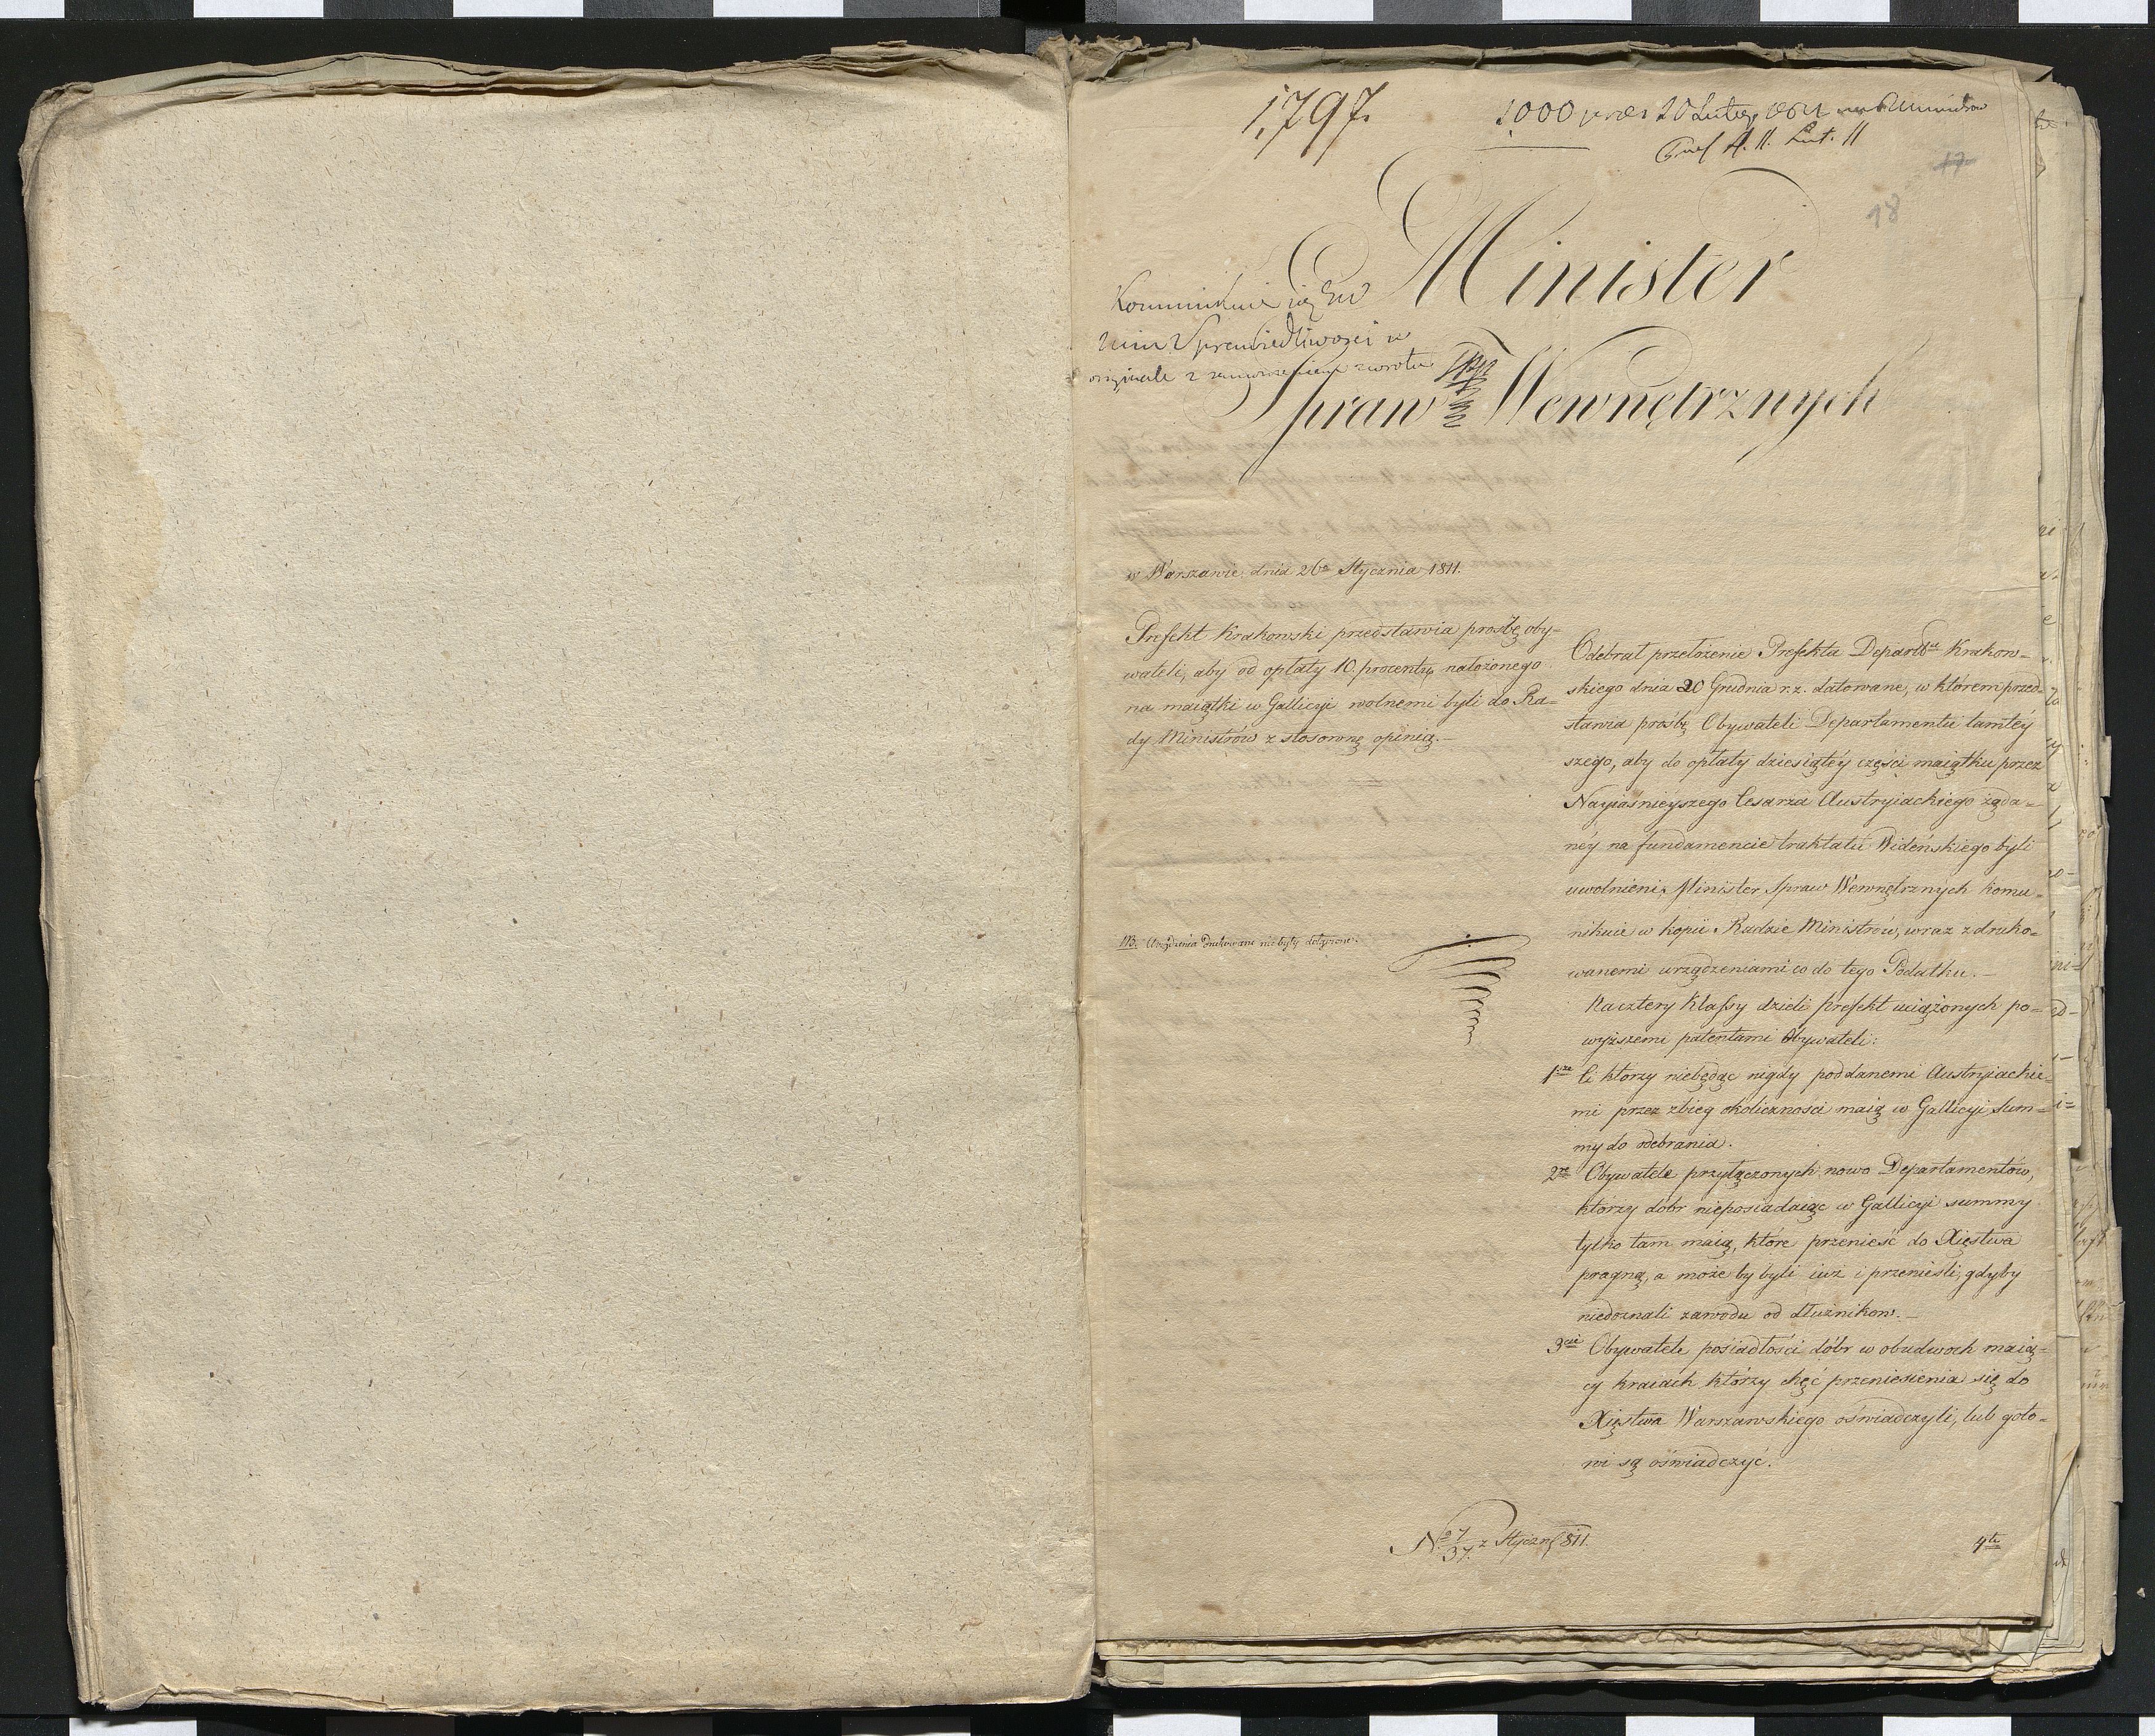 1,797.
1000 pres 20 Lutego
Lut. 11
17
18
Minister
Spraw Wewnętrznych
Kommunikuie się JW
Min. Sprawiedliwości w
oryginale z zamówieniem zwrotu
w Warszawie, dnia 26o Stycznia 1811.
Prefekt Krakowski przedstawia prośbę oby=
wateli, aby od opłaty 10. procentu nałożonego
na maiątki w Gallicyi wolnemi byli do Ra=
dy Ministrów z stosowną opinią.—
NB. Urządzenia Drukowane nie były dołączone.
Odebrał przełożenie Prefekta Departtu Krakow=
skiego dnia 20 Grudnia r.z. datowane, w którem przed=
stawia prośbę Obywateli Departamentu tamtéy
szego, aby do opłaty dziesiątéy części maiątku przez
Nayiaśnieyszego Cesarza Austryiackiego żąda=
néy na fundamencie traktatu Wideńskiego byli
uwolnieni; Minister Spraw Wewnętrznych komu=
nikuie w kopii Radzie Ministrów, wraz z druko=
wanemi urządzeniami co do tego Podatku.—
Na cztery Klassy dzieli Prefekt uciążonych po=
wyższemi patentami Obywateli:
1sze Ci ktorzy niebędąc nigdy poddanemi Austryiackie=
mi przez zbieg okoliczności maią w Gallicyi Sum=
my do odebrania.
2re Obywatele przyłączonych nowo Departamentów,
którzy dóbr nieposiadaiąc w Gallicyi summy
tylko tam maią, które przenieść do Xięstwa
pragną, a może by byli iuż i przenieśli, gdyby
niedoznali zawodu od dłużnikow.—
3cie Obywatele posiadłości dóbr w obudwoch maią=
cy kraiach, którzy chęć przeniesienia się do
Xięstwa Warszawskiego oświadczyli, lub goto=
wi są oświadczyć.
N. 27/37. z Styczn 811.
4te